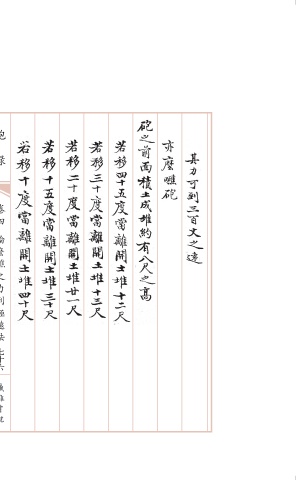 其力可到三百丈之遠
亦麼嚾砲
砲之前面積土成堆約有八尺之高
若移四十五度當離開土堆十二尺
若移三十度當離開土堆十三尺
若移二十度當離開土堆廿一尺
若移十五度當離開土堆三十尺
若移十度當離開土堆四十尺